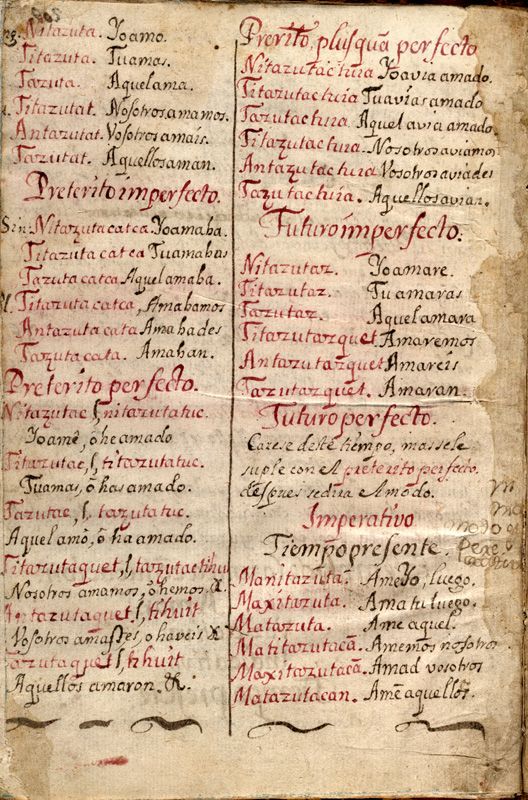 Nitazuta. Yoamo.
Titazuta. Tuamas.
Tazuta. Aquelama.
Titazutat. Nosotros amamos.
Antazutat. Vosotros amais.
Tazutat. Aquellos aman.
Preterito imperfecto.
Sin. Nitazuta catca Yoamaba.
Titazuta catca Tuamabas
Tazuta catca Aquel amaba.
Titazuta catca, Amabamos
Antazuta cata Amabades
Tazuta cata. Amaban.
Preterito perfecto.
Nitazutac, l, nitazutatuc.
Yoamè, ò he amado
Titazutac, l, titazutatuc.
Tuamas, ò has amado.
Tazutac, l, tazutatuc.
Aquel amò, ò ha amado.
Titazutaquet, l, tazutactihuit
Nosotros amamos, ò hemos &.
Antazutaquet l, tihuit
Vosotros amastes, o haveis &
Tazutaquet l, tihuit
Aquellos amaron. &.
Prerito, plusquã perfecto
Nitazutactuia Yoavia amado.
Titazutactuia Tuavias amado
Tazutactuia Aquel avia amado.
Titazutactuia. Nosotros aviamos
Antazutactuia Vosotros aviades
Tazutactuia. Aquellos avian.
Futuro imperfecto.
Nitazutaz. Yoamare.
Titazutaz. Tuamaras
Tazutaz. Aquel amara
Titazutazquet Amaremos
Antazutazquet Amareis
Tazutazquet. Amaran.
Futuro perfecto.
Carese deste tiempo, mas sele
suple con el preterito perfecto.
despues sedira el modo.
Imperativo
Tiempo presente.
Manitazuta. Ame Yo, luego.
Maxitazuta. Ama tu luego.
Matazuta. Ame aquel.
Matitazutacã. Amemos nosotros
Maxitazutacã. Amad vosotros
Matazutacan. Amẽ aquellos.